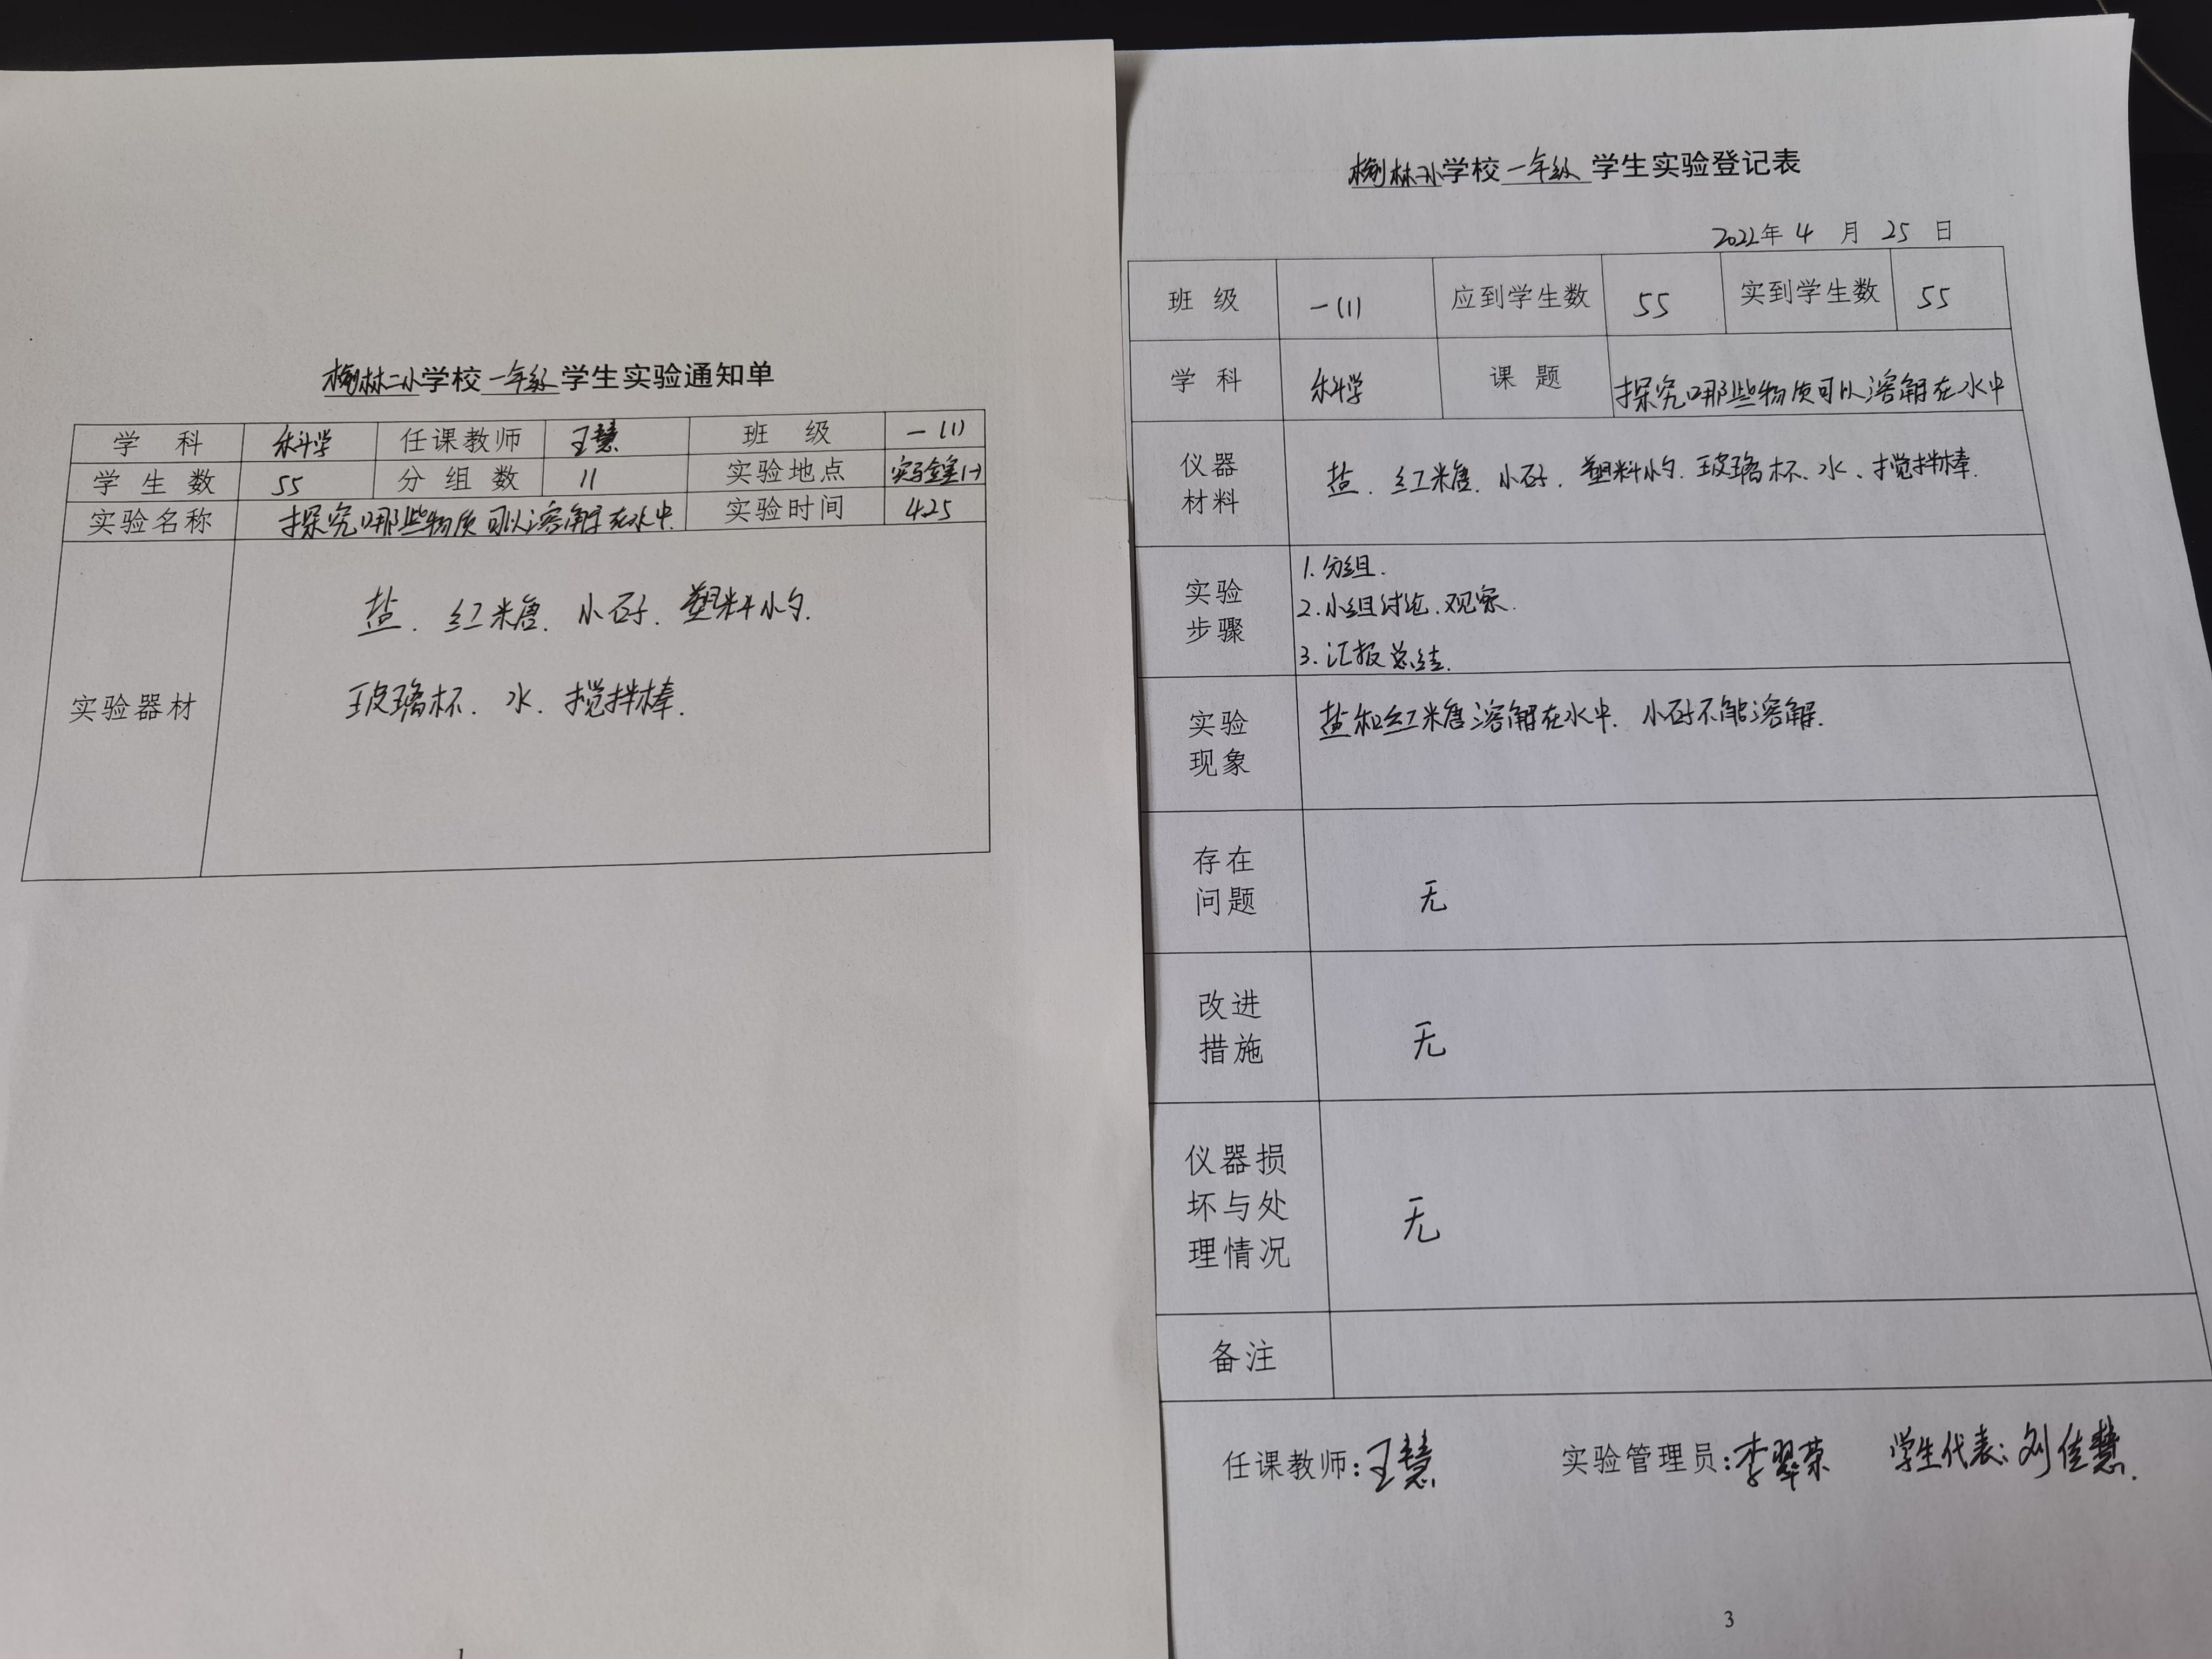 槲林二小学校一年级学生实验通知单
学 科 科学 任课教师 王慧 班 级 一(1)
学 生 数 55 分 组 数 11 实验地点 实验室(一)
实验名称 探究哪些物质可以溶解在水中. 实验时间 4.25
实验器材
盐、红糖、小石子、塑料小勺.
玻璃杯、水、搅拌棒.
1
槲林二小学校一年级学生实验登记表
2022年 4 月 25 日
班 级 一(1) 应到学生数 55 实到学生数 55
学 科 科学 课 题 探究哪些物质可以溶解在水中
仪器
材料
盐、红糖、小石子、塑料小勺、玻璃杯、水、搅拌棒.
实验
步骤
1.分组.
2.小组讨论、观察.
3.汇报总结.
实验
现象
盐和红糖溶解在水中.小石子不能溶解.
存在
问题
无
改进
措施
无
仪器损
坏与处
理情况
无
备注
任课教师:王慧 实验管理员:李翠荣 学生代表:刘佳慧.
3